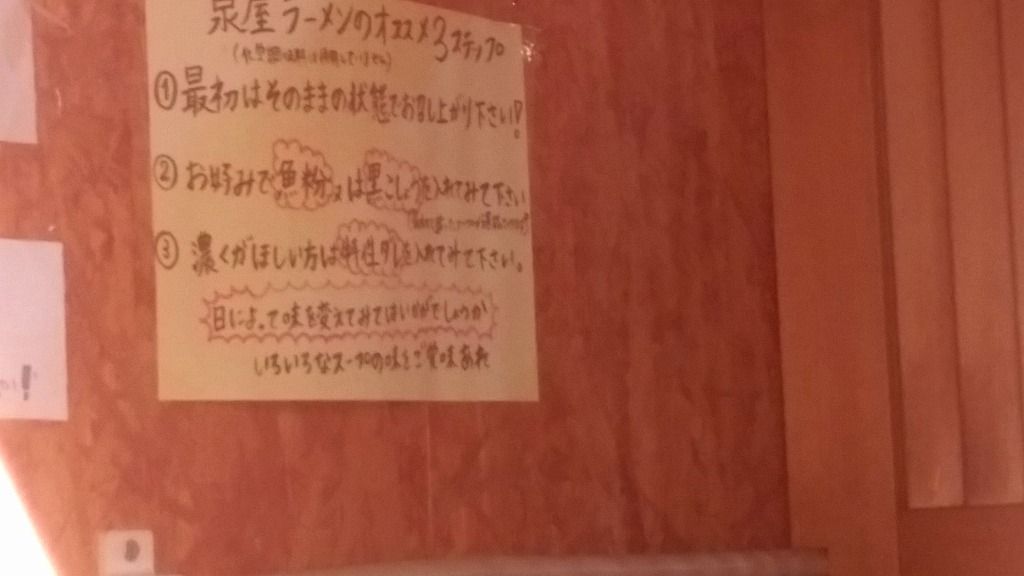 泉屋ラーメンのオススメ3ステップ
(化学調味料は使用していません)
①最初はそのままの状態でお召し上がり下さい!
②お好みで魚粉又は黒こしょうを入れてみて下さい
③濃くがほしい方は特性タレを入れてみて下さい。
日によって味を変えてみてはいかがでしょうか
いろいろなスープの味をご賞味あれ